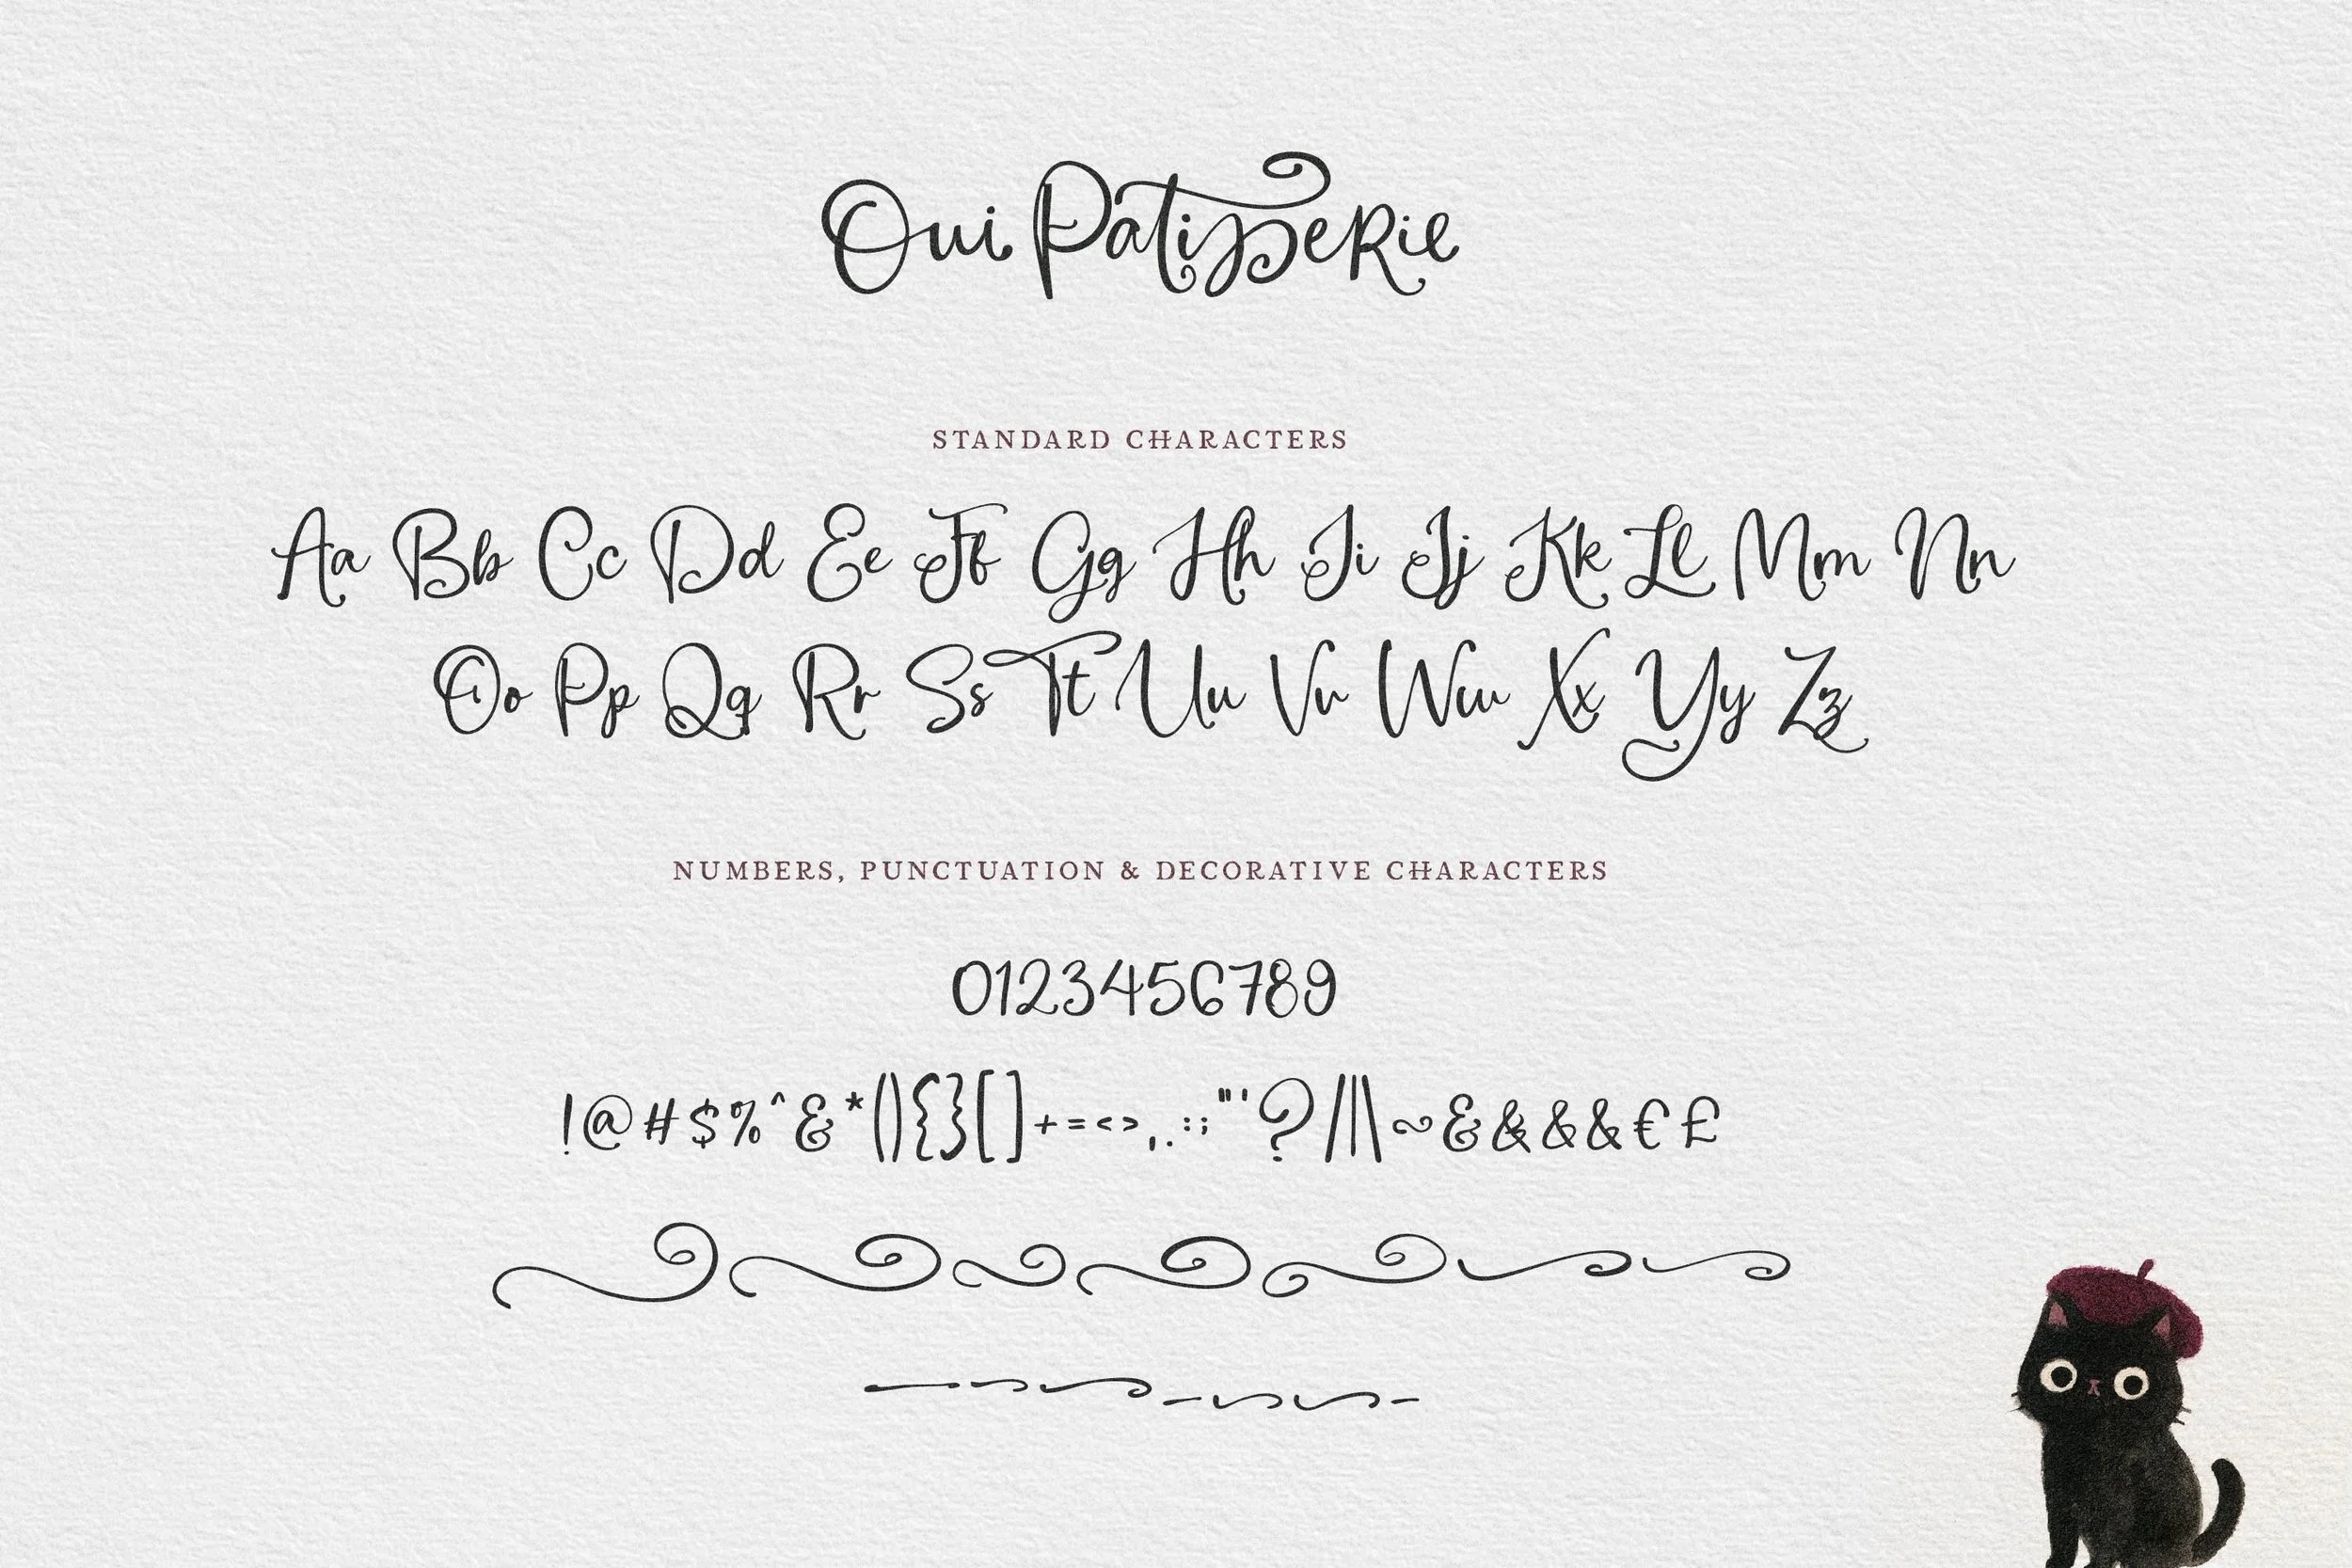 Oui Patisserie
STANDARD CHARACTERS
Aa Bb Cc Dd Ee Ff Gg Hh Ii Jj Kk Ll Mm Nn
Oo Pp Qq Rr Ss Tt Uu Vv Ww Xx Yy Zz
NUMBERS, PUNCTUATION & DECORATIVE CHARACTERS
0123456789
!@#$%^&*(){}[]+=<>,.:;"'?/|\~&&&&€£